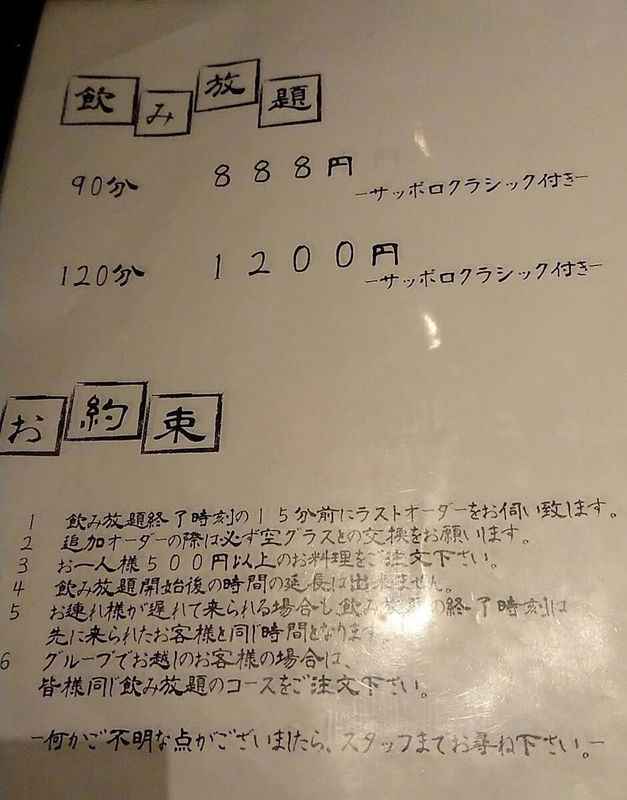 飲み放題
90分 888円 ーサッポロクラシック付きー
120分 1200円 ーサッポロクラシック付きー
お約束
1 飲み放題終了時刻の15分前にラストオーダーをお伺い致します。
2 追加オーダーの際は必ず空グラスとの交換をお願います。
3 お一人様500円以上のお料理をご注文下さい。
4 飲み放題開始後の時間の延長は出来ません。
5 お連れ様が遅れて来られる場合も飲み放題の終了時刻は
先に来られたお客様と同じ時間となります。
6 グループでお越しのお客様の場合は、
皆様同じ飲み放題のコースをご注文下さい。
ー何かご不明な点がございましたら、スタッフまでお尋ね下さい。ー